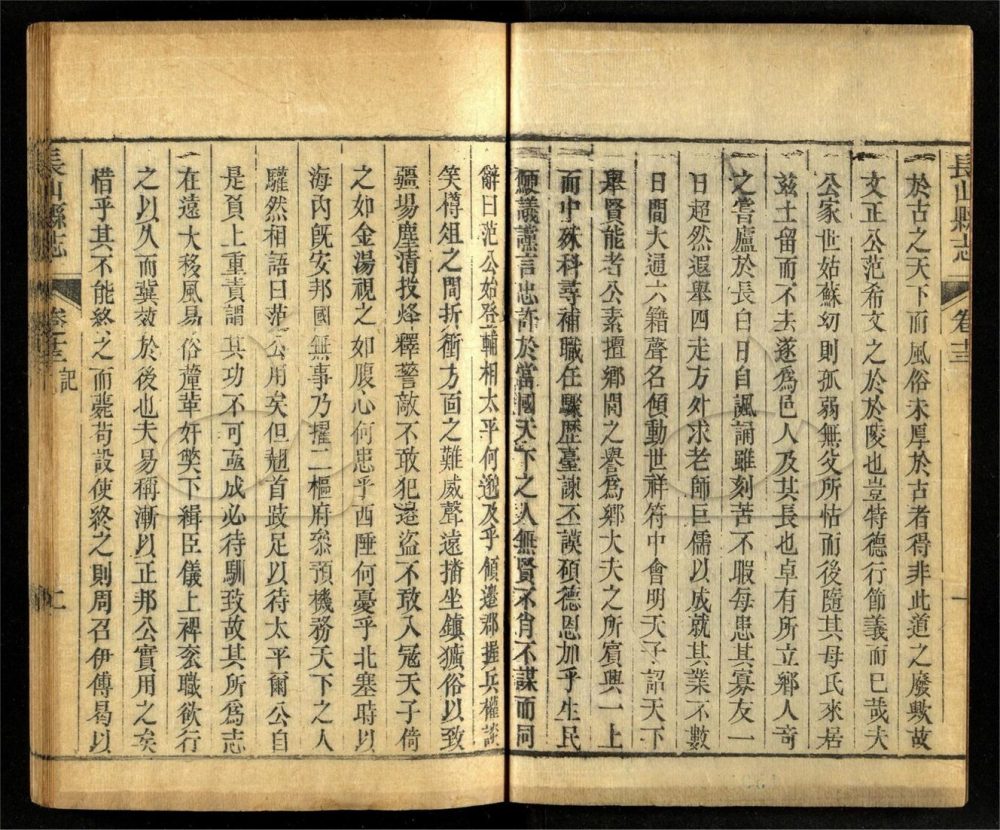 長山縣志 卷十三
於古之天下而風俗未厚於古者得非此道之廢歟故
文正公范希文之於於陵也豈特德行節義而已哉夫
公家世姑蘇幼則孤弱無父所怙而後隨其母氏來居
兹土留而不去遂爲邑人及其長也卓有所立鄉人奇
之嘗廬於長白日自諷誦雖刻苦不暇每患其寡友一
日超然遐舉四走方外求老師巨儒以成就其業不數
日間大通六籍聲名傾動世祥符中會明天子詔天下
舉賢能者公素擅鄉閭之譽爲鄉大夫之所賔興一上
而中殊科尋補職任驟歷臺諫丕謨碩德恩加乎生民
硬議讜言忠許於當國天下之人無賢不肖不謀而同
辭曰范公始登輔相太平何逸及乎領邉郡握兵權談
笑樽俎之間折衝方面之難威聲遠播坐鎮獷俗以致
疆埸塵清投烽釋警敵不敢犯邉盜不敢入冦天子倚
之如金湯視之如腹心何患乎西陲何憂乎北塞時以
海内旣安邦國無事乃擢二樞府叅預機務天下之人
驩然相語曰范公用矣但翹首跂足以待太平爾公自
是負上重責謂其功不可亟成必待馴致故其所爲志
在遠大移風易俗薙葦奸獘下緝臣儀上裨衮職欲行
之以久而冀效於後也夫易稱漸以正邦公實用之矣
惜乎其不能終之而薨苟設使終之則周召伊傅曷以
長山縣志 卷之十三 記